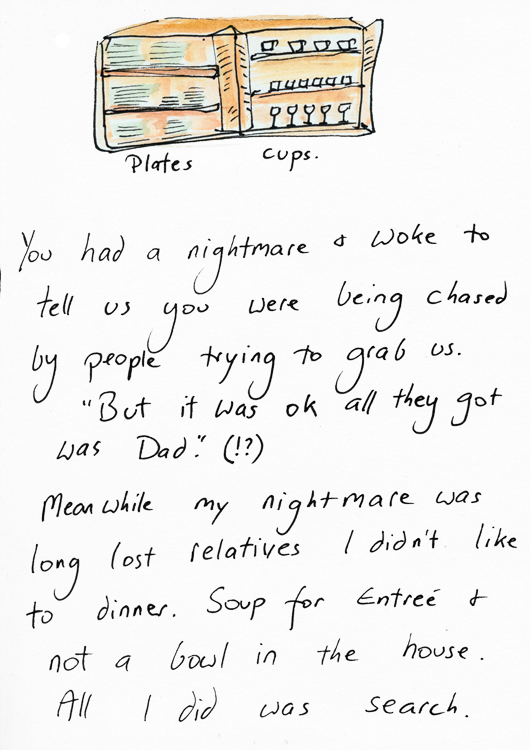 Plates cups.
You had a nightmare & woke to
tell us you were being chased
by people trying to grab us.
"But it was ok all they got
was Dad." (!?)
Meanwhile my nightmare was
long lost relatives I didn't like
to dinner. Soup for Entreé &
not a bowl in the house.
All I did was search.